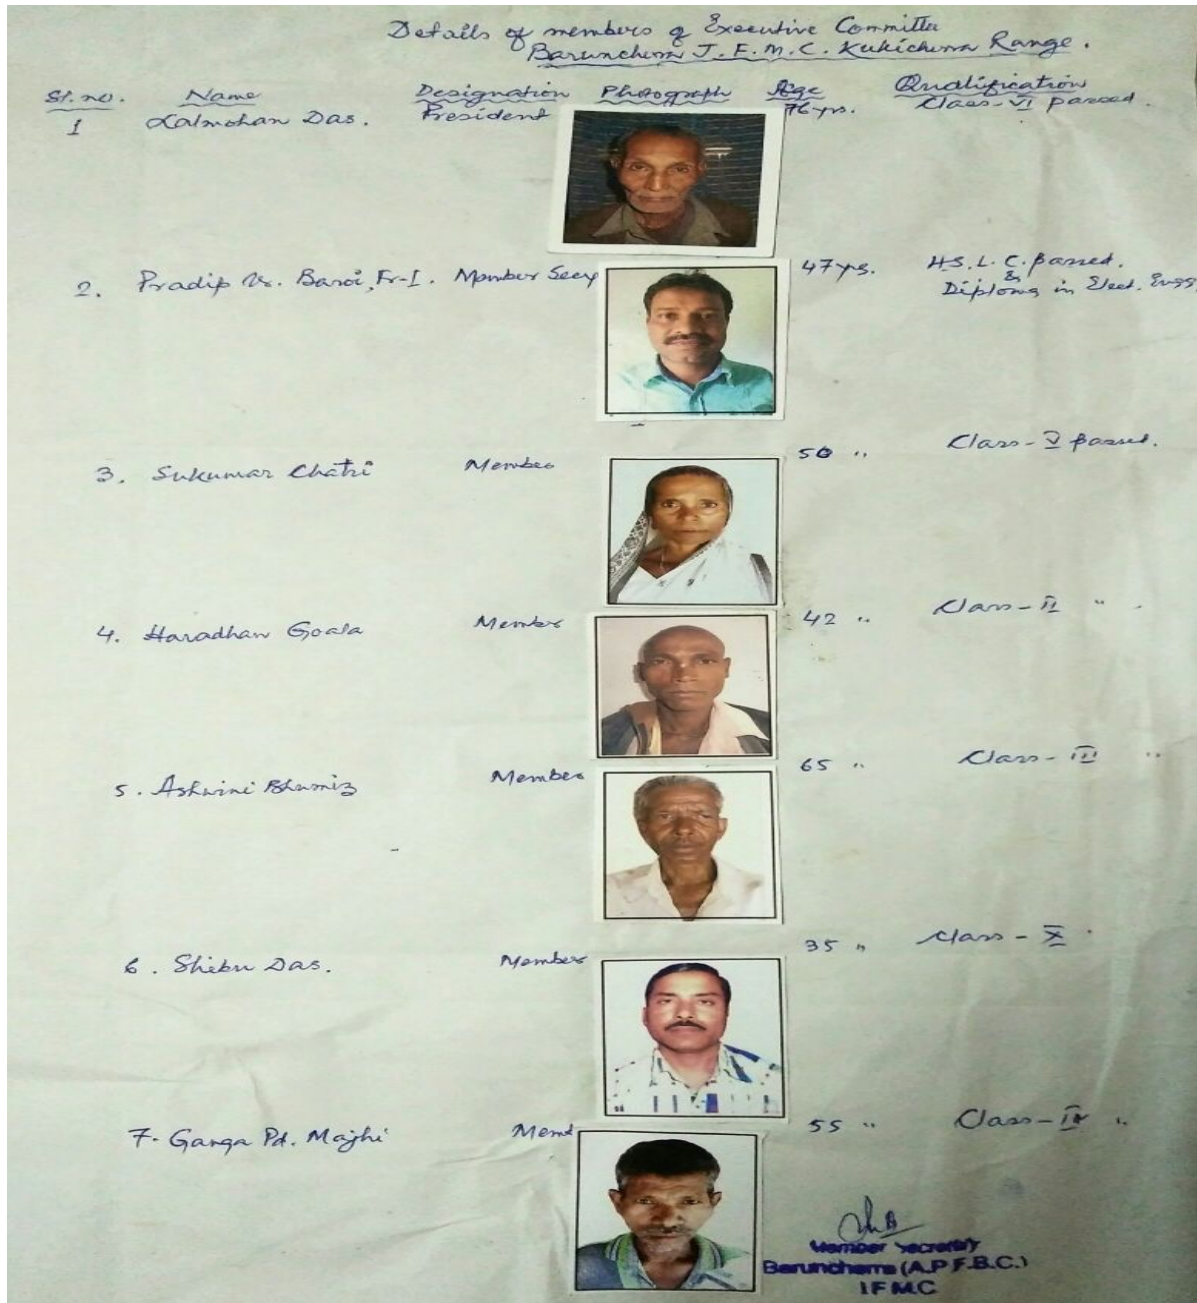 Details of members of Executive Committe
Baruncherra J.F.M.C. Kukicherra Range.
Sl. no. Name Designation Photograph Age Qualification
1 Lalmohan Das. President 76 yrs. Class-VI passed.
2. Pradip Kr. Baroi, Fr-I. Member Secy 47 yrs. H.S.L.C. passed.
&
Diploma in Elect. Engg.
3. Sukumar Chatri Member 50 " Class-V passed.
4. Haradhan Goala Member 42 " Class-II " .
5. Ashwini Bhumiz Member 65 " Class-III "
6. Shibu Das. Member 35 " Class-X "
7. Ganga Pd. Majhi Memb 55 " Class-IV "
Member Secretary
Baruncherra (A.P.F.B.C.)
JFMC